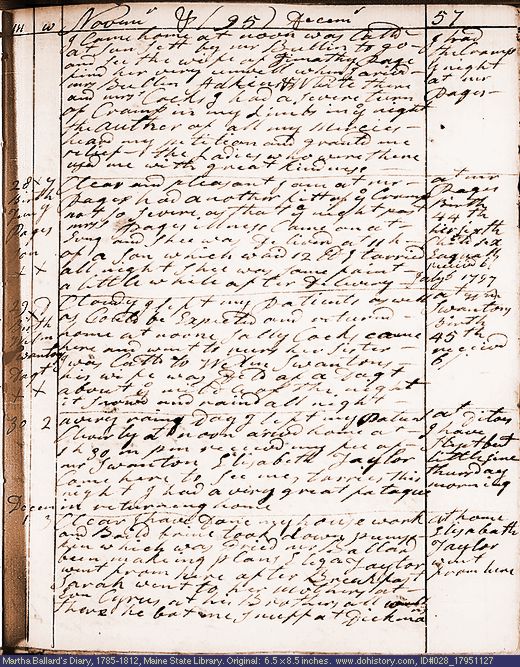 m w Novmr & (95) Decemr 57
I Came home at noon was Calld
at Sun sett by mr Bullin to go
and see the wife of Timothy Page
find her very unwell when arivd
mrs Bullin Adkins & White there
and mrs Cocks I had a severe turn
of Cramp in my Limbs in ye night
the Author of all my Mercies
heard my Petition and grantd me
relief. the Ladies who were there
usd me with great kindness
I had
the Cramp
ye night
at mr
Pages
28 7 Clear and pleasant I am at mr
Birth Pages had another fitt of ye Cramp
Timy not so severe as that ye night past
Pages mrs Pages illness Came on at
Son Evng and shee was Deliverd at 11 h
x x of a Son which wd 12 lb I tarried
all night shee was some faint
a little while after Delivery
at mr
Pages
Birth
44th
her sixth
Child
receivd
Jany 1 1797
29 D Cloudy I left my patients as well
Birth as Could be Expected and returnd
home at noone Sally Cocks came
Swanton here and went to nurs her Sister
Dagt was Calld to Mr Swantons
x x his wife was Delivd of a Dagt
about
it snowd and raind all night
at Wm
Swantons
Birth
45th
receivd
6/
30 2 a very rainy Day I left my Patient
at noon arivd home at
3 h 30 m pm received my fee of
mr Swanton Elisabeth Taylor
Came here to See me, tarries this
night I had a very great fatague
in returning home
at Ditoes
I have
Slept but
little since
thursday
morning
Decem
1 3 Clear I have Done my house work
and Bakd brime took Down
which was mr Ballard
been making plans Eliza Taylor
went from here after Breakfast
Sarah went to her Mothers,
son Cyrus at his Brothers, all
there he
at home
Elisabeth
Taylor
went
from here
Martha Ballard's Diary, 1785-1812, Maine State Library. Original: 6.5 x 8.5 inches. www.dohistory.com, ID#028_17951127